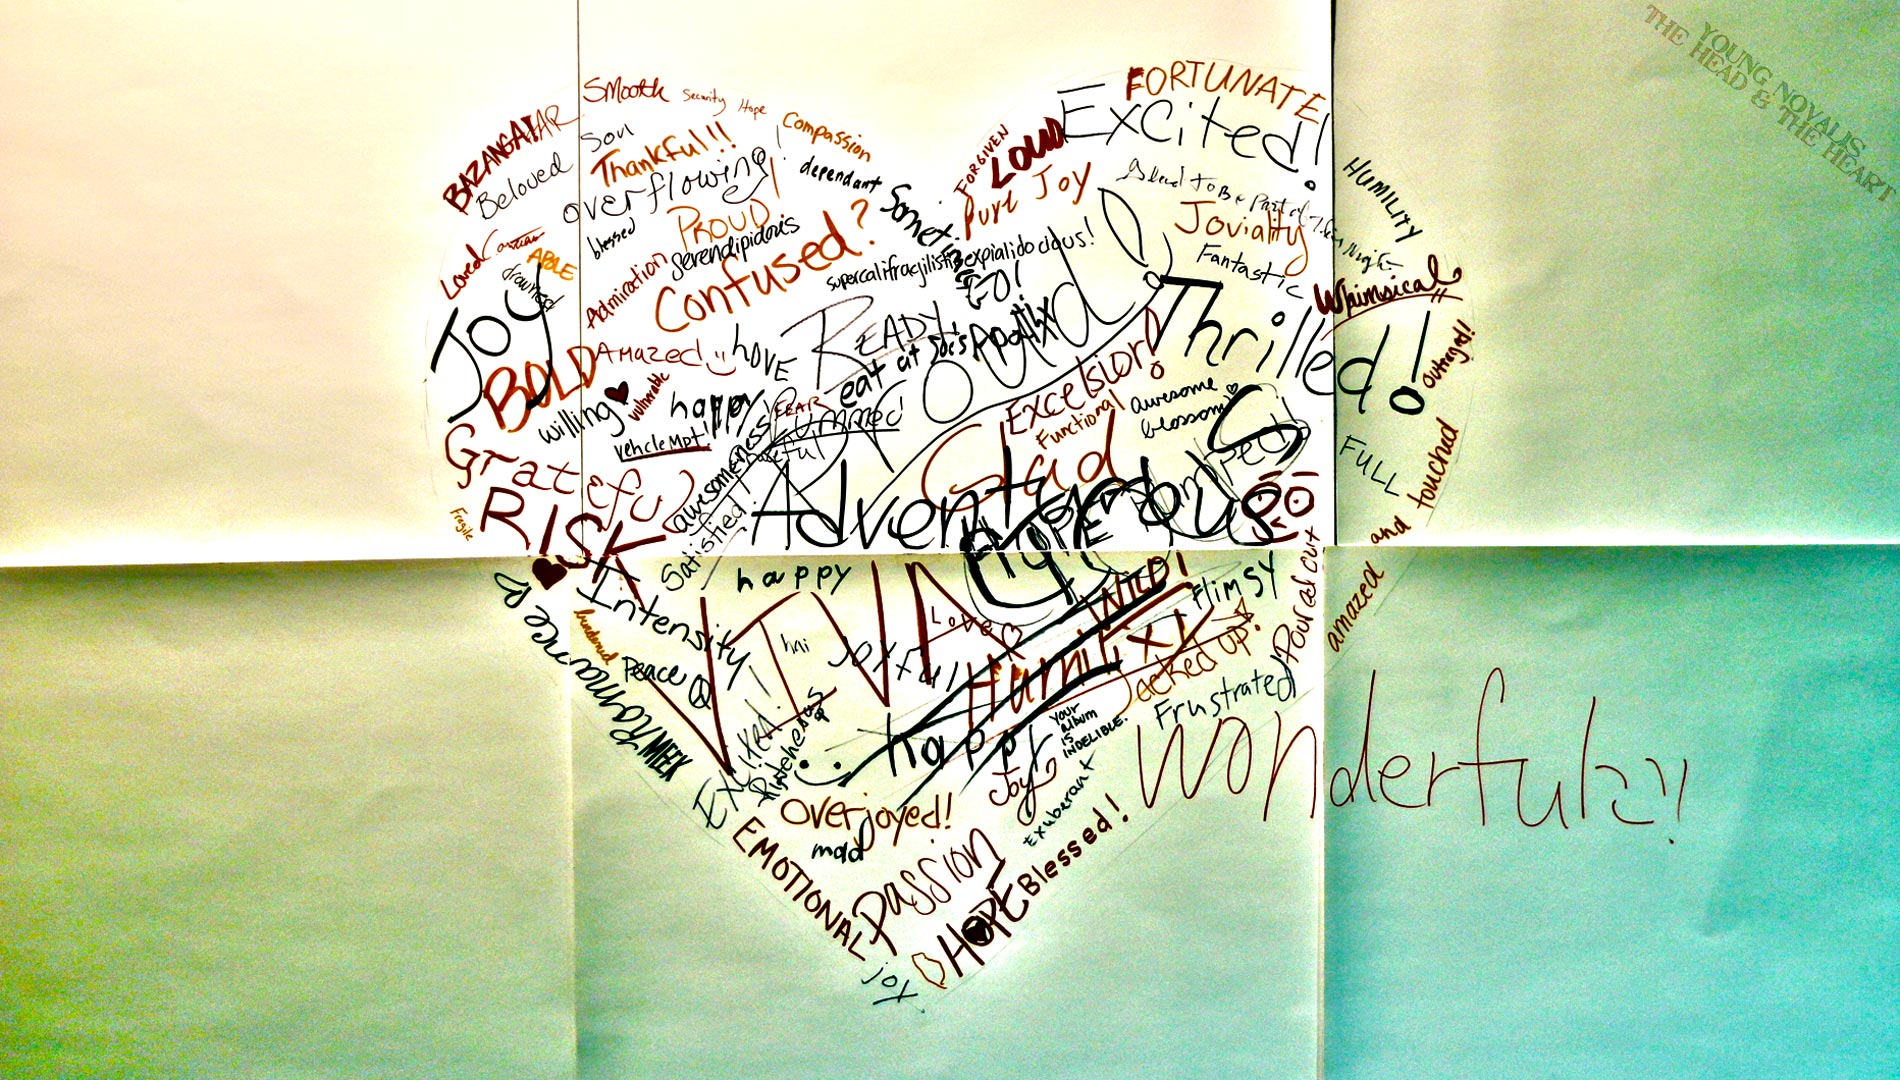 YOUNG NOVALIS
THE HEAD & THE HEART
FORTUNATE
Smooth
Security
Hope
Excited!
BAZANGA!
Son
Compassion
Thankful!!
FORGIVEN
LOUD
Beloved
overflowing!
dependant
HUMILITY
Pure Joy
Glad to Be Part of This Night
PROUD!
Sometimes
Joviality
blessed
serendipidoris
Loved
ABLE
Confused?
supercalifragilisticexpialidocious!
Fantastic
Admiration
Whimsical
JOY
READY
Thrilled!
outraged!
BOLD
Amazed
LOVE
eat at Joe's
Loud!
Excelsior!
willing
vulnerable
happy
FEAR
Functional
awesome
blossom
vehclempt!
Grateful
awesomeness
Glad
FULL
touched
RISK
Satisfied!
Adventurous
and
Fragile
happy
WILD!
Flimsy
Poured out
amazed
Romance
Intensity
burdened
VIVA
Love
hai
Joyful
Humility!
Jacked up!
Peace
Frustrated
MEEK
Exited!
happy
Your
album
is
INDELIBLE.
wonderful!!
Joy
Exuberant
Overjoyed!
mad
EMOTIONAL
Passion
Blessed!
HOPE
joy